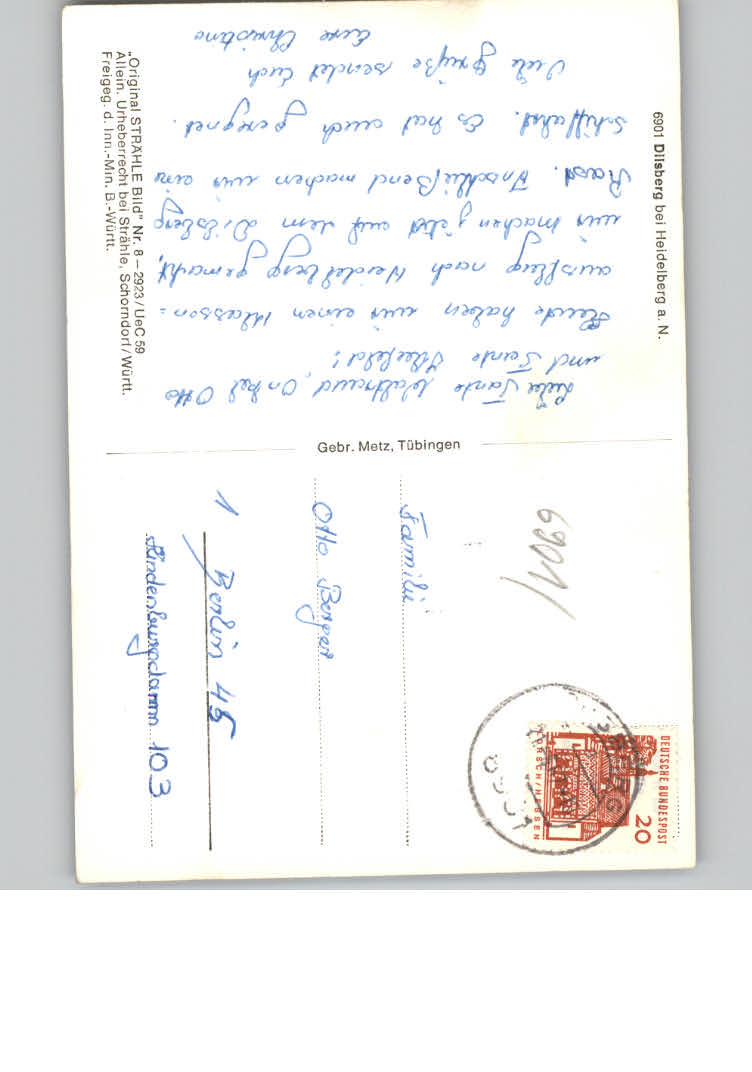 6901 Dilsberg bei Heidelberg a. N.
Liebe Tante Waltraud, Onkel Otto
und Tante Illefeld!
Heute haben wir einen Klassen=
ausflug nach Heidelberg gemacht,
wir machen jetzt auf dem Dilsberg
Rast. Anschließend machen wir eine
Schiffahrt. Es hat auch geregnet.
Viele Grüße sendet Euch
Eure Christine
„Original STRÄHLE Bild" Nr. 8 – 2923 / UeC 59
Allein. Urheberrecht bei Strähle, Schorndorf / Württ.
Freigeg. d. Inn.-Min. B.-Württ.
Gebr. Metz, Tübingen
6901/
DEUTSCHE BUNDESPOST
20
LORSCH/HESSEN
Familie
Otto Berger
1 Berlin 45
Hindenburgdamm 103